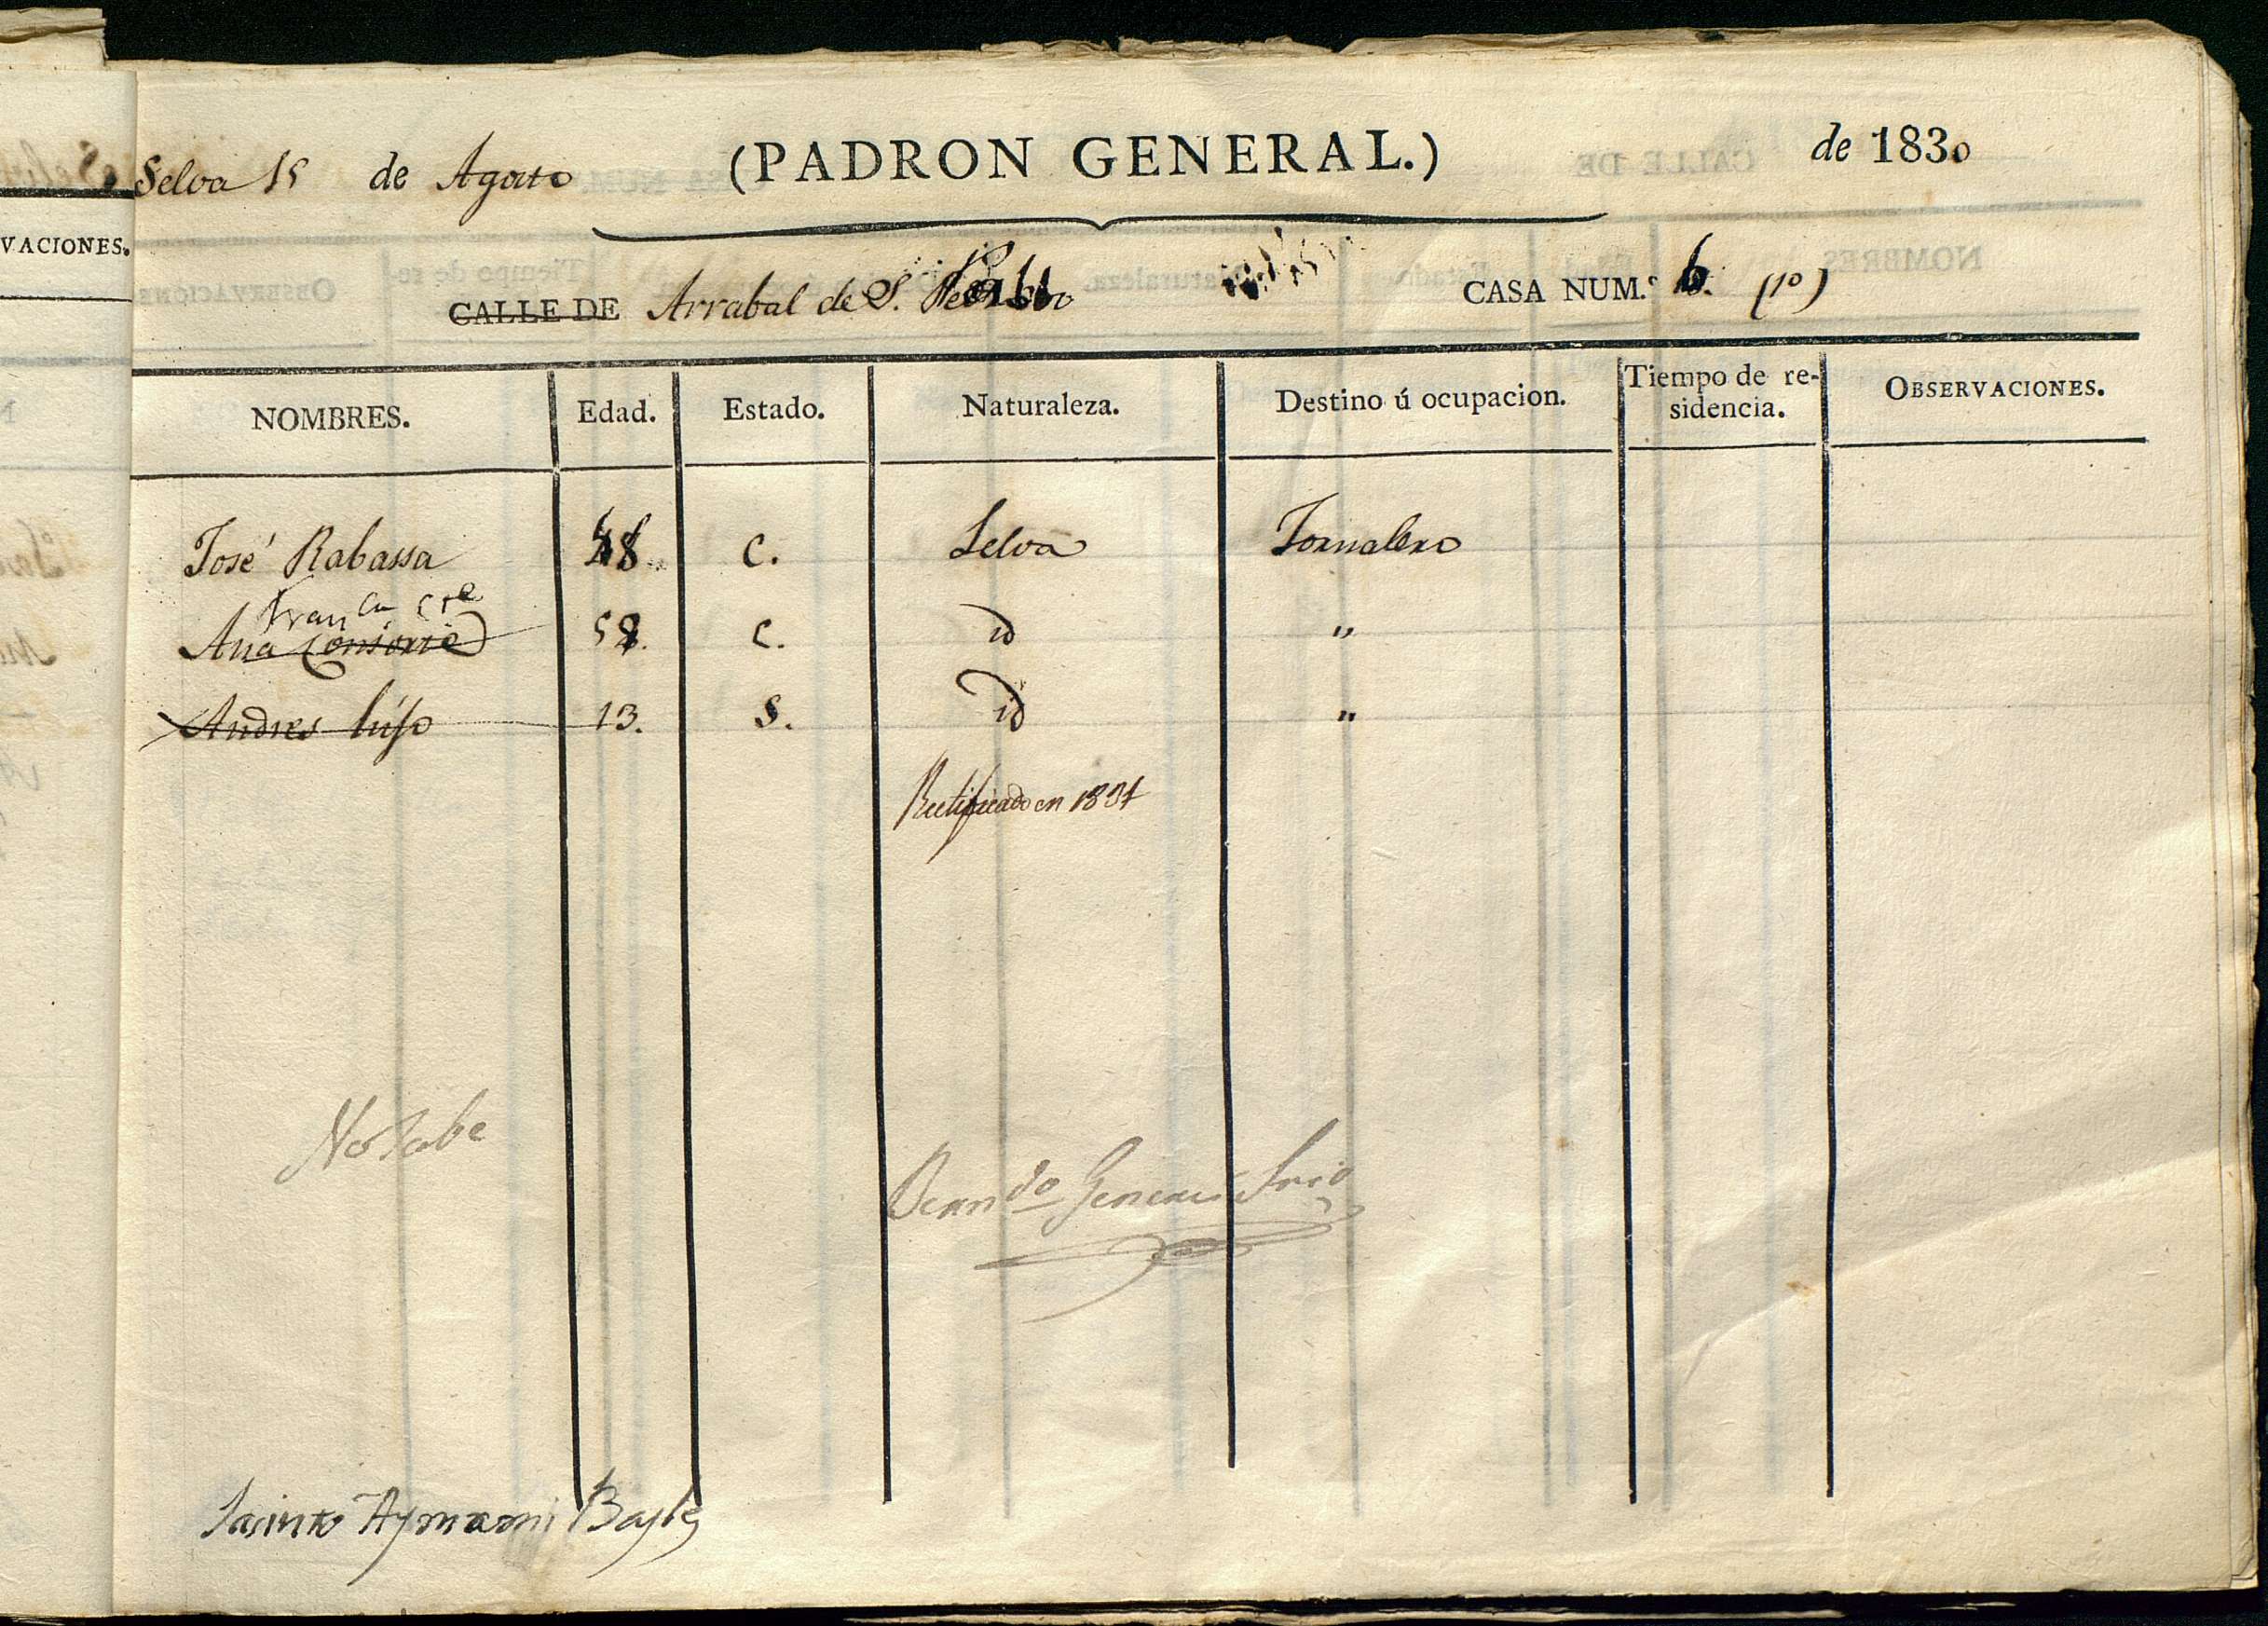 Selva 15 de Agosto (PADRON GENERAL.) de 1830
CALLE DE Arrabal de S. Pablo CASA NUM.º 6. (1º)
NOMBRES. Edad. Estado. Naturaleza. Destino ú ocupacion. Tiempo de re-sidencia. OBSERVACIONES.
VACIONES.
José Rabassa 48. C. Selva Jornalero
Fran.ca cte
Ana Consorte 58. C. id "
Andres hijo 13. S. id "
Rectificado en 1831
No sabe
Bern.do Srio
Jacinto Aymami Bayle